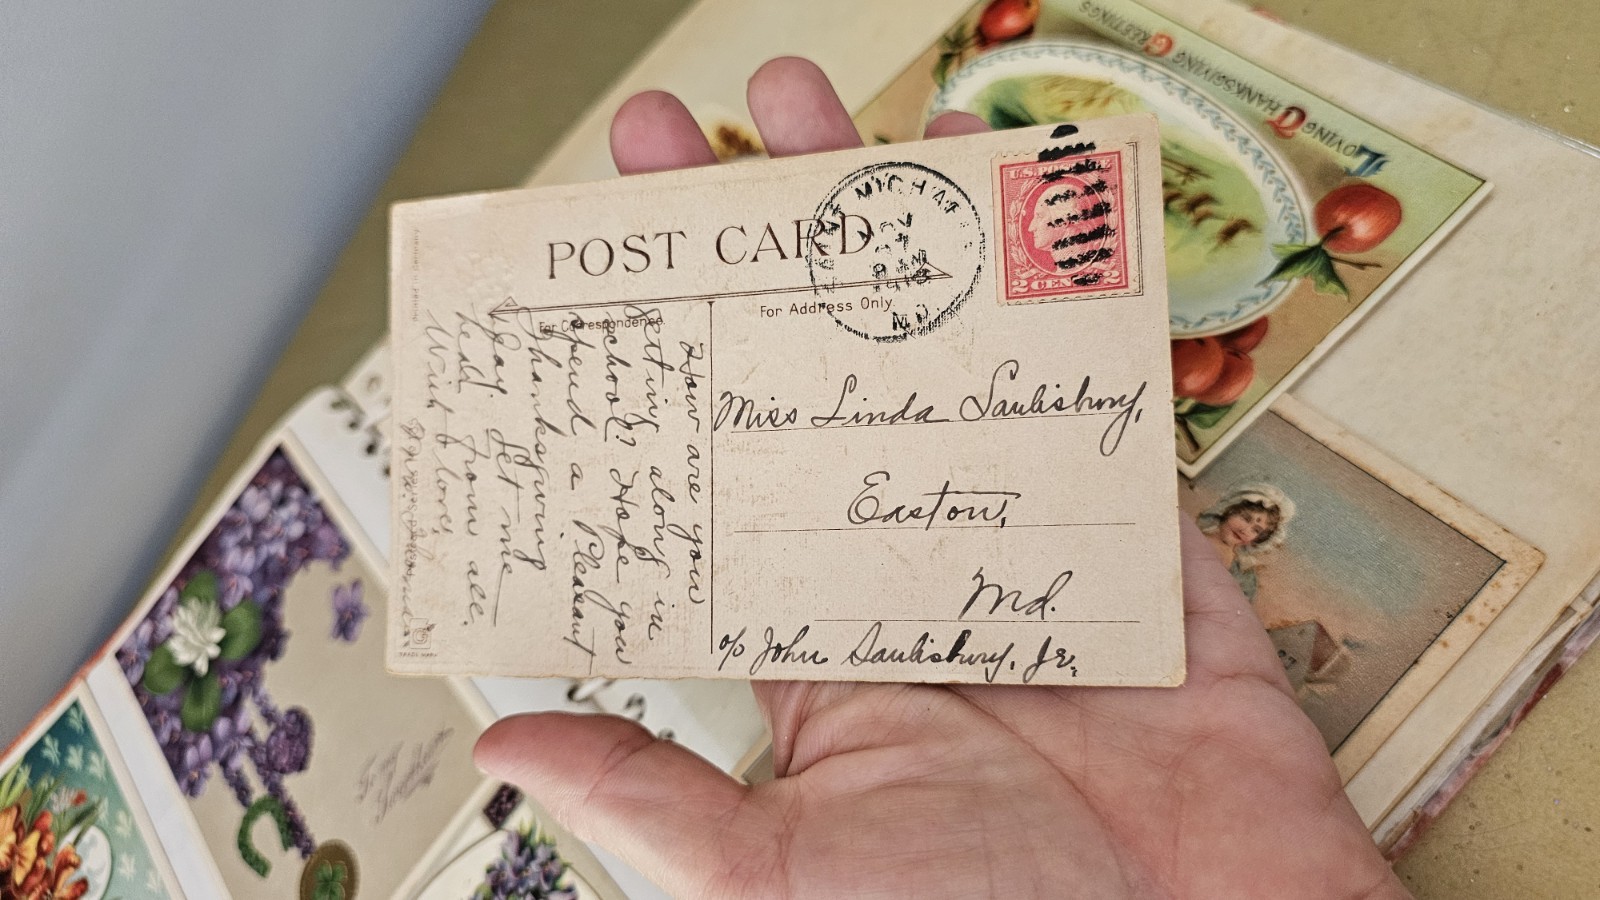 POST CARD
For Correspondence
For Address Only.
U.S. POSTAGE
2 CENTS 2
NOV
27
8 AM
MD.
Miss Linda Saulisbury,
Easton,
Md.
c/o John Saulisbury, Jr.
How are you
getting along in
school? Hope you
spend a Pleasant
Thanksgiving
Day. Let me
hear from all.
With love,
LOVING THANKSGIVING GREETINGS